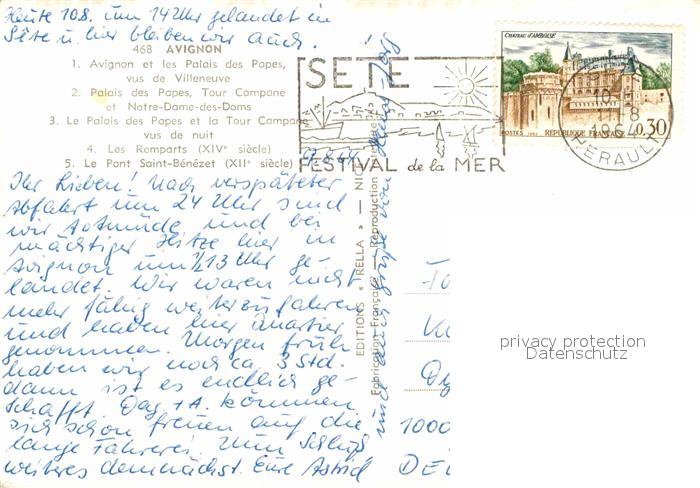 Heute 10.8. um 14 Uhr gelandet in
Sète u. hier bleiben wir auch.
468 AVIGNON
1. Avignon et les Palais des Papes,
vus de Villeneuve
2. Palais des Papes, Tour Campane
et Notre-Dame-des-Doms
3. Le Palais des Papes et la Tour Campane
vus de nuit
4. Les Remparts (XIVe siècle)
5. Le Pont Saint-Bénézet (XIIe siècle)
9.8.64
Ihr Lieben! Nach verspäteter
Abfahrt um 24 Uhr sind
wir totmüde und bei
mächtiger Hitze hier in
Avignon um 1/2 13 Uhr ge-
landet. Wir waren nicht
mehr fähig weiterzufahren
und haben hier Quartier
genommen. Morgen früh
haben wir noch ca. 3 Std.
dann ist es endlich ge-
schafft. Dag + A. können
sich schon freuen auf die
lange Fahrerei. Zum Schluß
weiteres demnächst. Eure Astrid
und auch Grüße von Jörg
EDITIONS « RELLA » — NICE
Fabrication Française — Reproduction
SETE
FESTIVAL de la MER
CHATEAU D'AMBOISE
POSTES 1963 REPUBLIQUE FRANÇAISE 0,30
10 8
1964
HERAULT
1000
privacy protection
Datenschutz